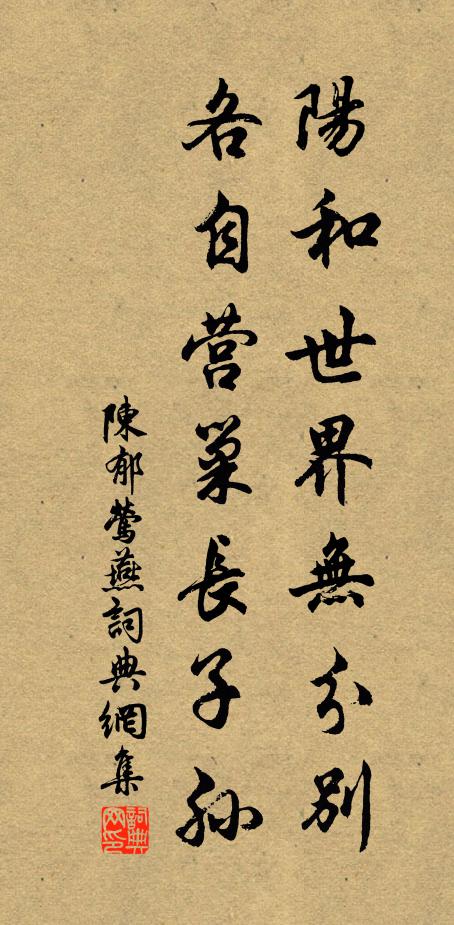 陽和世界無分別
各自营巢長子孫
陳郁鶯燕詞典網集
詞典网印